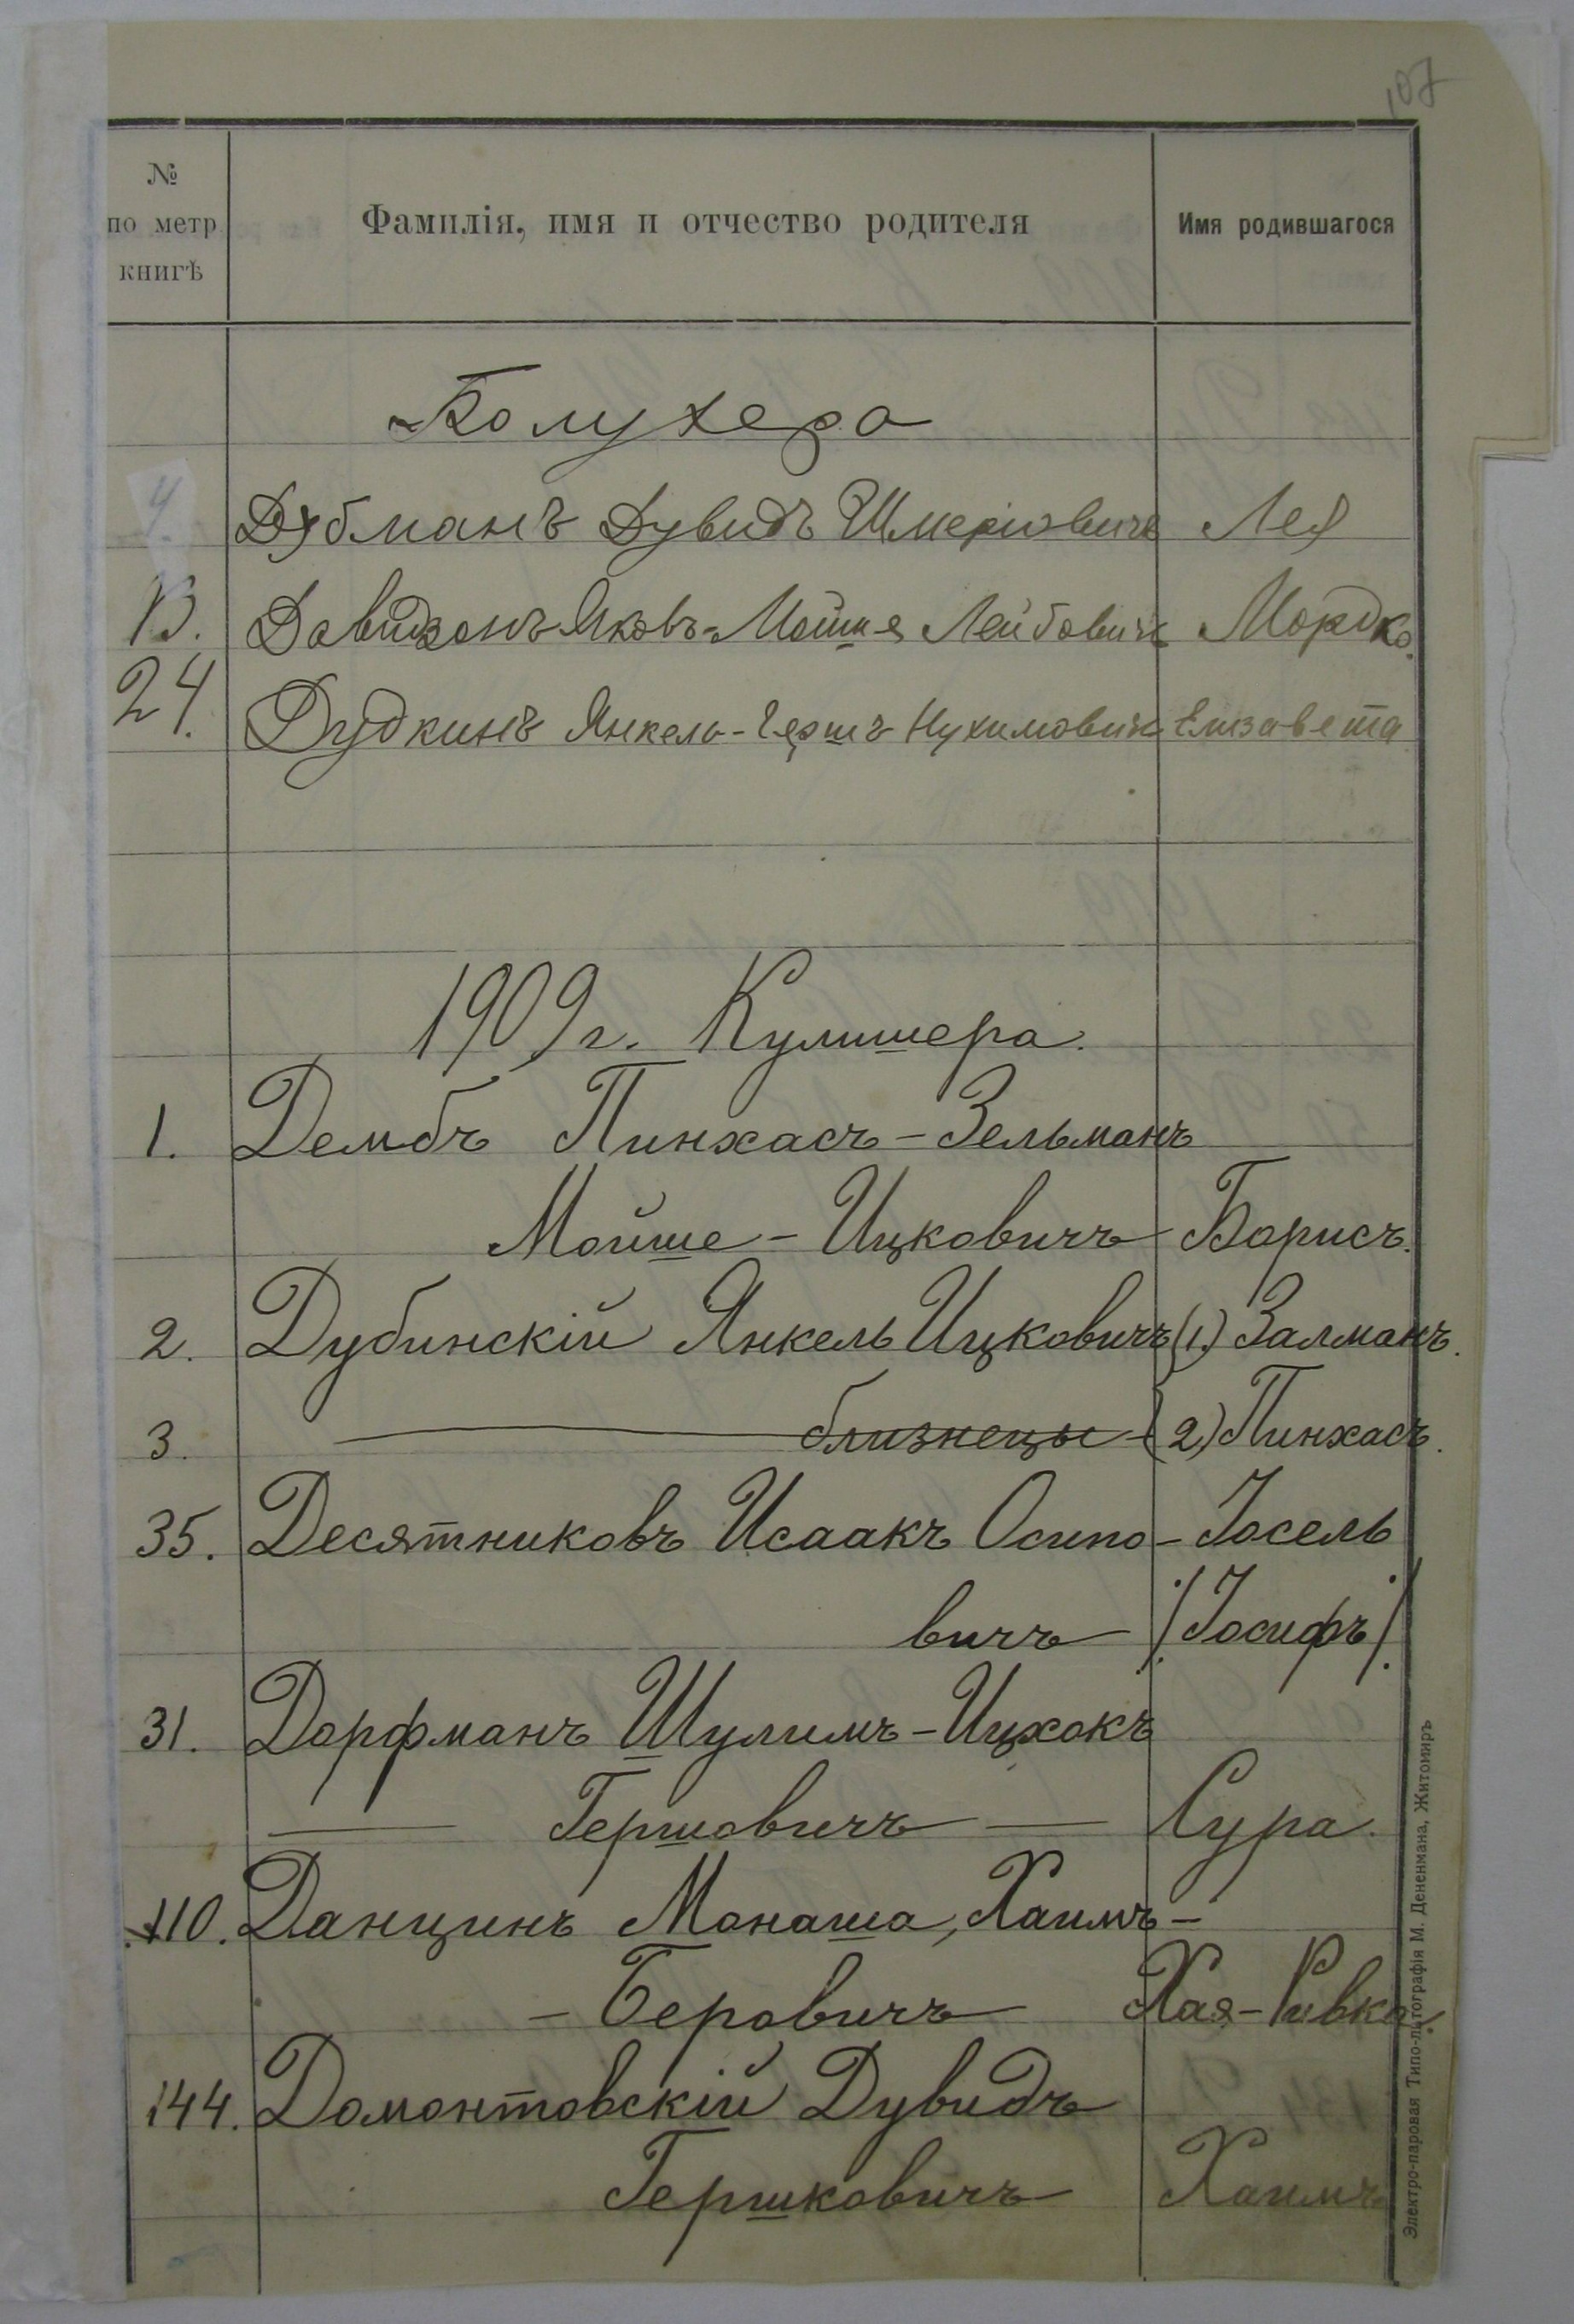 107
№
по метр.
книгѣ
Фамилія, имя и отчество родителя
Имя родившагося
Колухера
4. Дубманъ Дувидъ Шмеріовичъ Лея
13. Давидзонъ Яковъ-Мойше Лейбовичъ Мордко.
24. Дудкинъ Янкель-Гершъ Нухимовичъ Елизавета
1909 г. Кулишера.
1. Дембъ Пинхасъ-Зельманъ
Мойше-Ицковичъ Борисъ.
2. Дубинскій Янкель Ицковичъ (1) Залманъ.
3. близнецы (2) Пинхасъ.
35. Десятниковъ Исаакъ Осипо- Іосель
вичъ /Іосифъ/
31. Дорфманъ Шулимъ-Ицхокъ
Гершовичъ Сура.
110. Данцинъ Монаша, Хаимъ-
-Беровичъ Хая-Ривка.
144. Домонтовскій Дувидъ
Гершковичъ Хаимъ
Электро-паровая Типо-литографія М. Дененмана, Житомиръ